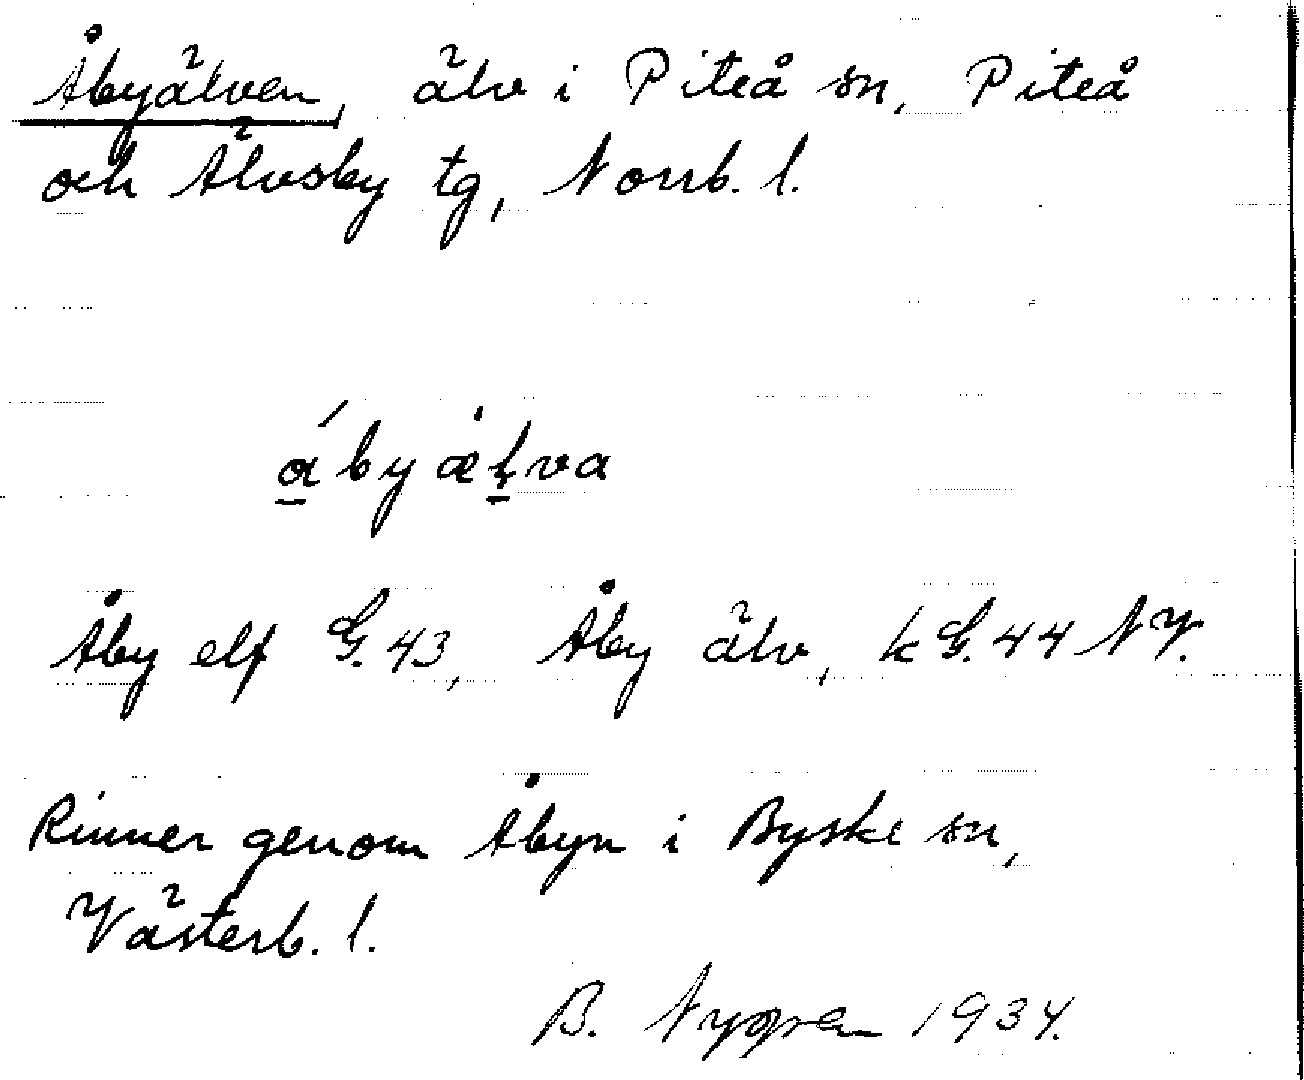 Åbyälven, älv i Piteå sn, Piteå
och Älvsby tg, Norrb. l.
ábyælva
Åby elf G. 43, Åby älv, k G. 44 NV.
Rinner genom Åbyn i Byske sn,
Västerb. l.
B. Nygren 1934.